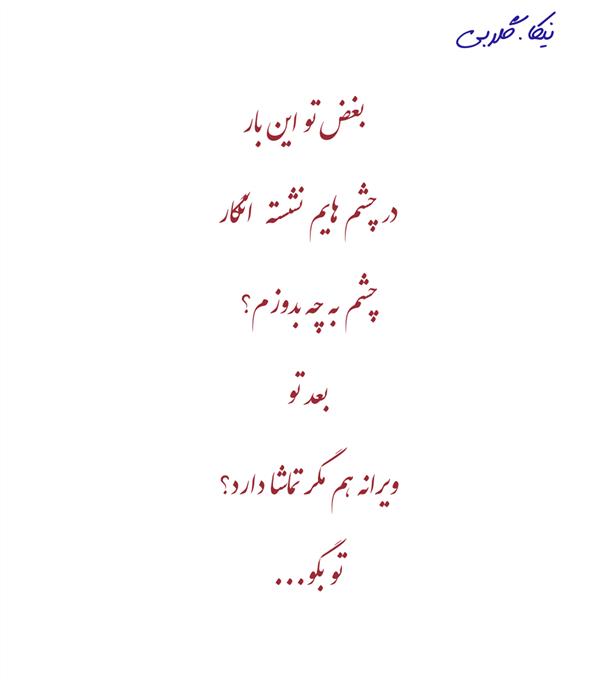 نیکا. گلدبی
بغض تو این بار
در چشم هایم نشسته انگار
چشم به چه بدوزم؟
بعد تو
ویرانه هم مگر تماشا دارد؟
تو بگو...